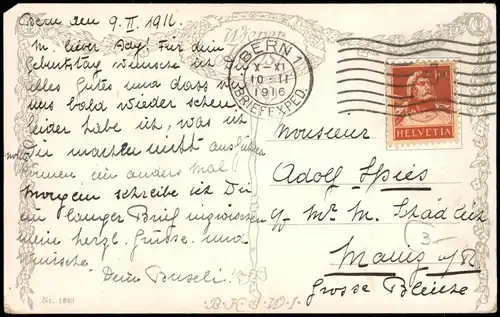 Bern den 9. II. 1916.
M. lieber Ady! Für dein
Geburtstag wünsche ich
alles Gute, und dass wir
uns bald wieder sehen.
Leider habe ich, was ich
Dir machen wollte nicht
können ein anders mal!
Morgen schreibe ich Dir
ein langer Brief inzwischen
mein herzl. Grüsse und
Wünsche Dein Buseli.
Wiener
BERN 1
X-XI
10-II
1916
BRIEFEXPED.
HELVETIA
Monsieur
Adolf Spies
p/ Mr. M. Städ
Mainz a/R
Grosse Bleiche
3-
Nr. 1699
B.K.W.I.